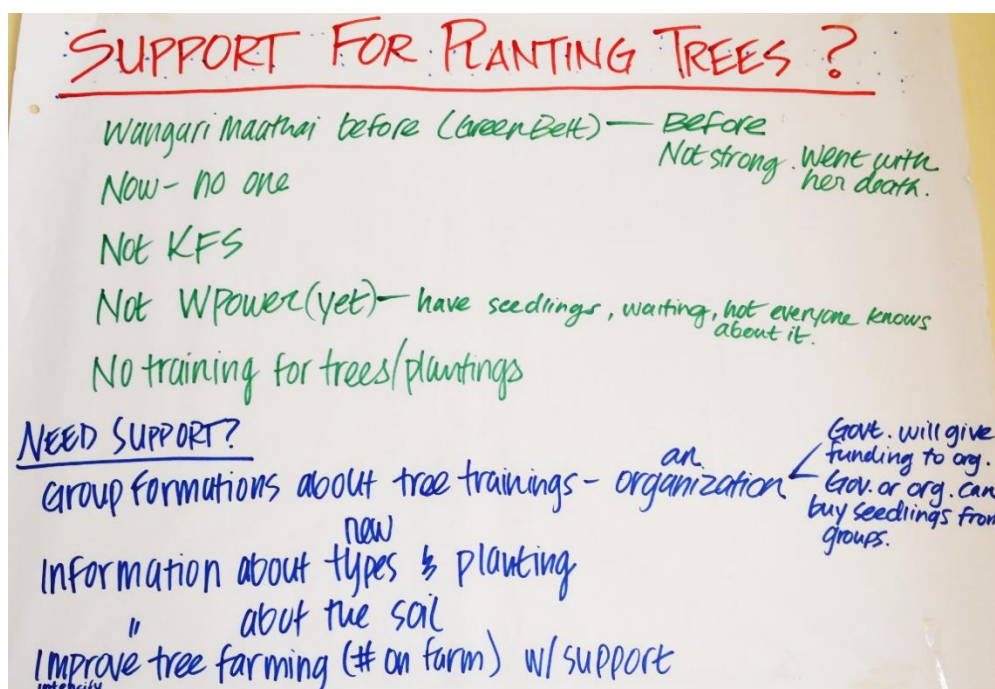 SUPPORT FOR PLANTING TREES?
Wangari Maathai before (Green Belt) — Before
Not strong. Went with
her death.
Now - no one
Not KFS
Not WPower (yet) — have seedlings, waiting, not everyone knows
about it.
No training for trees/plantings
NEED SUPPORT?
Group formations about tree trainings - an organization
Govt. will give
funding to org.
Gov. or org. can
buy seedlings from
groups.
Information about new types & planting
" about the soil
Improve tree farming (# on farm) w/ support
intensify